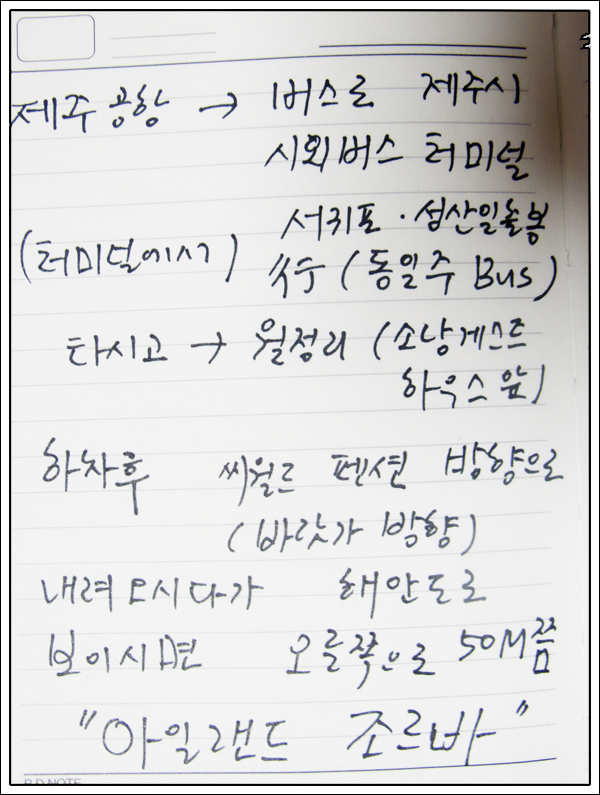 제주공항 → 버스로 제주시
시외버스 터미널
(터미널에서) 서귀포 · 성산일출봉
(동일주 Bus)
타시고 → 월정리 (소낭게스트
하우스 앞)
하차후 씨월드 펜션 방향으로
(바닷가 방향)
내려오시다가 해안도로
보이시면 오른쪽으로 50M쯤
"아일랜드 조르바"